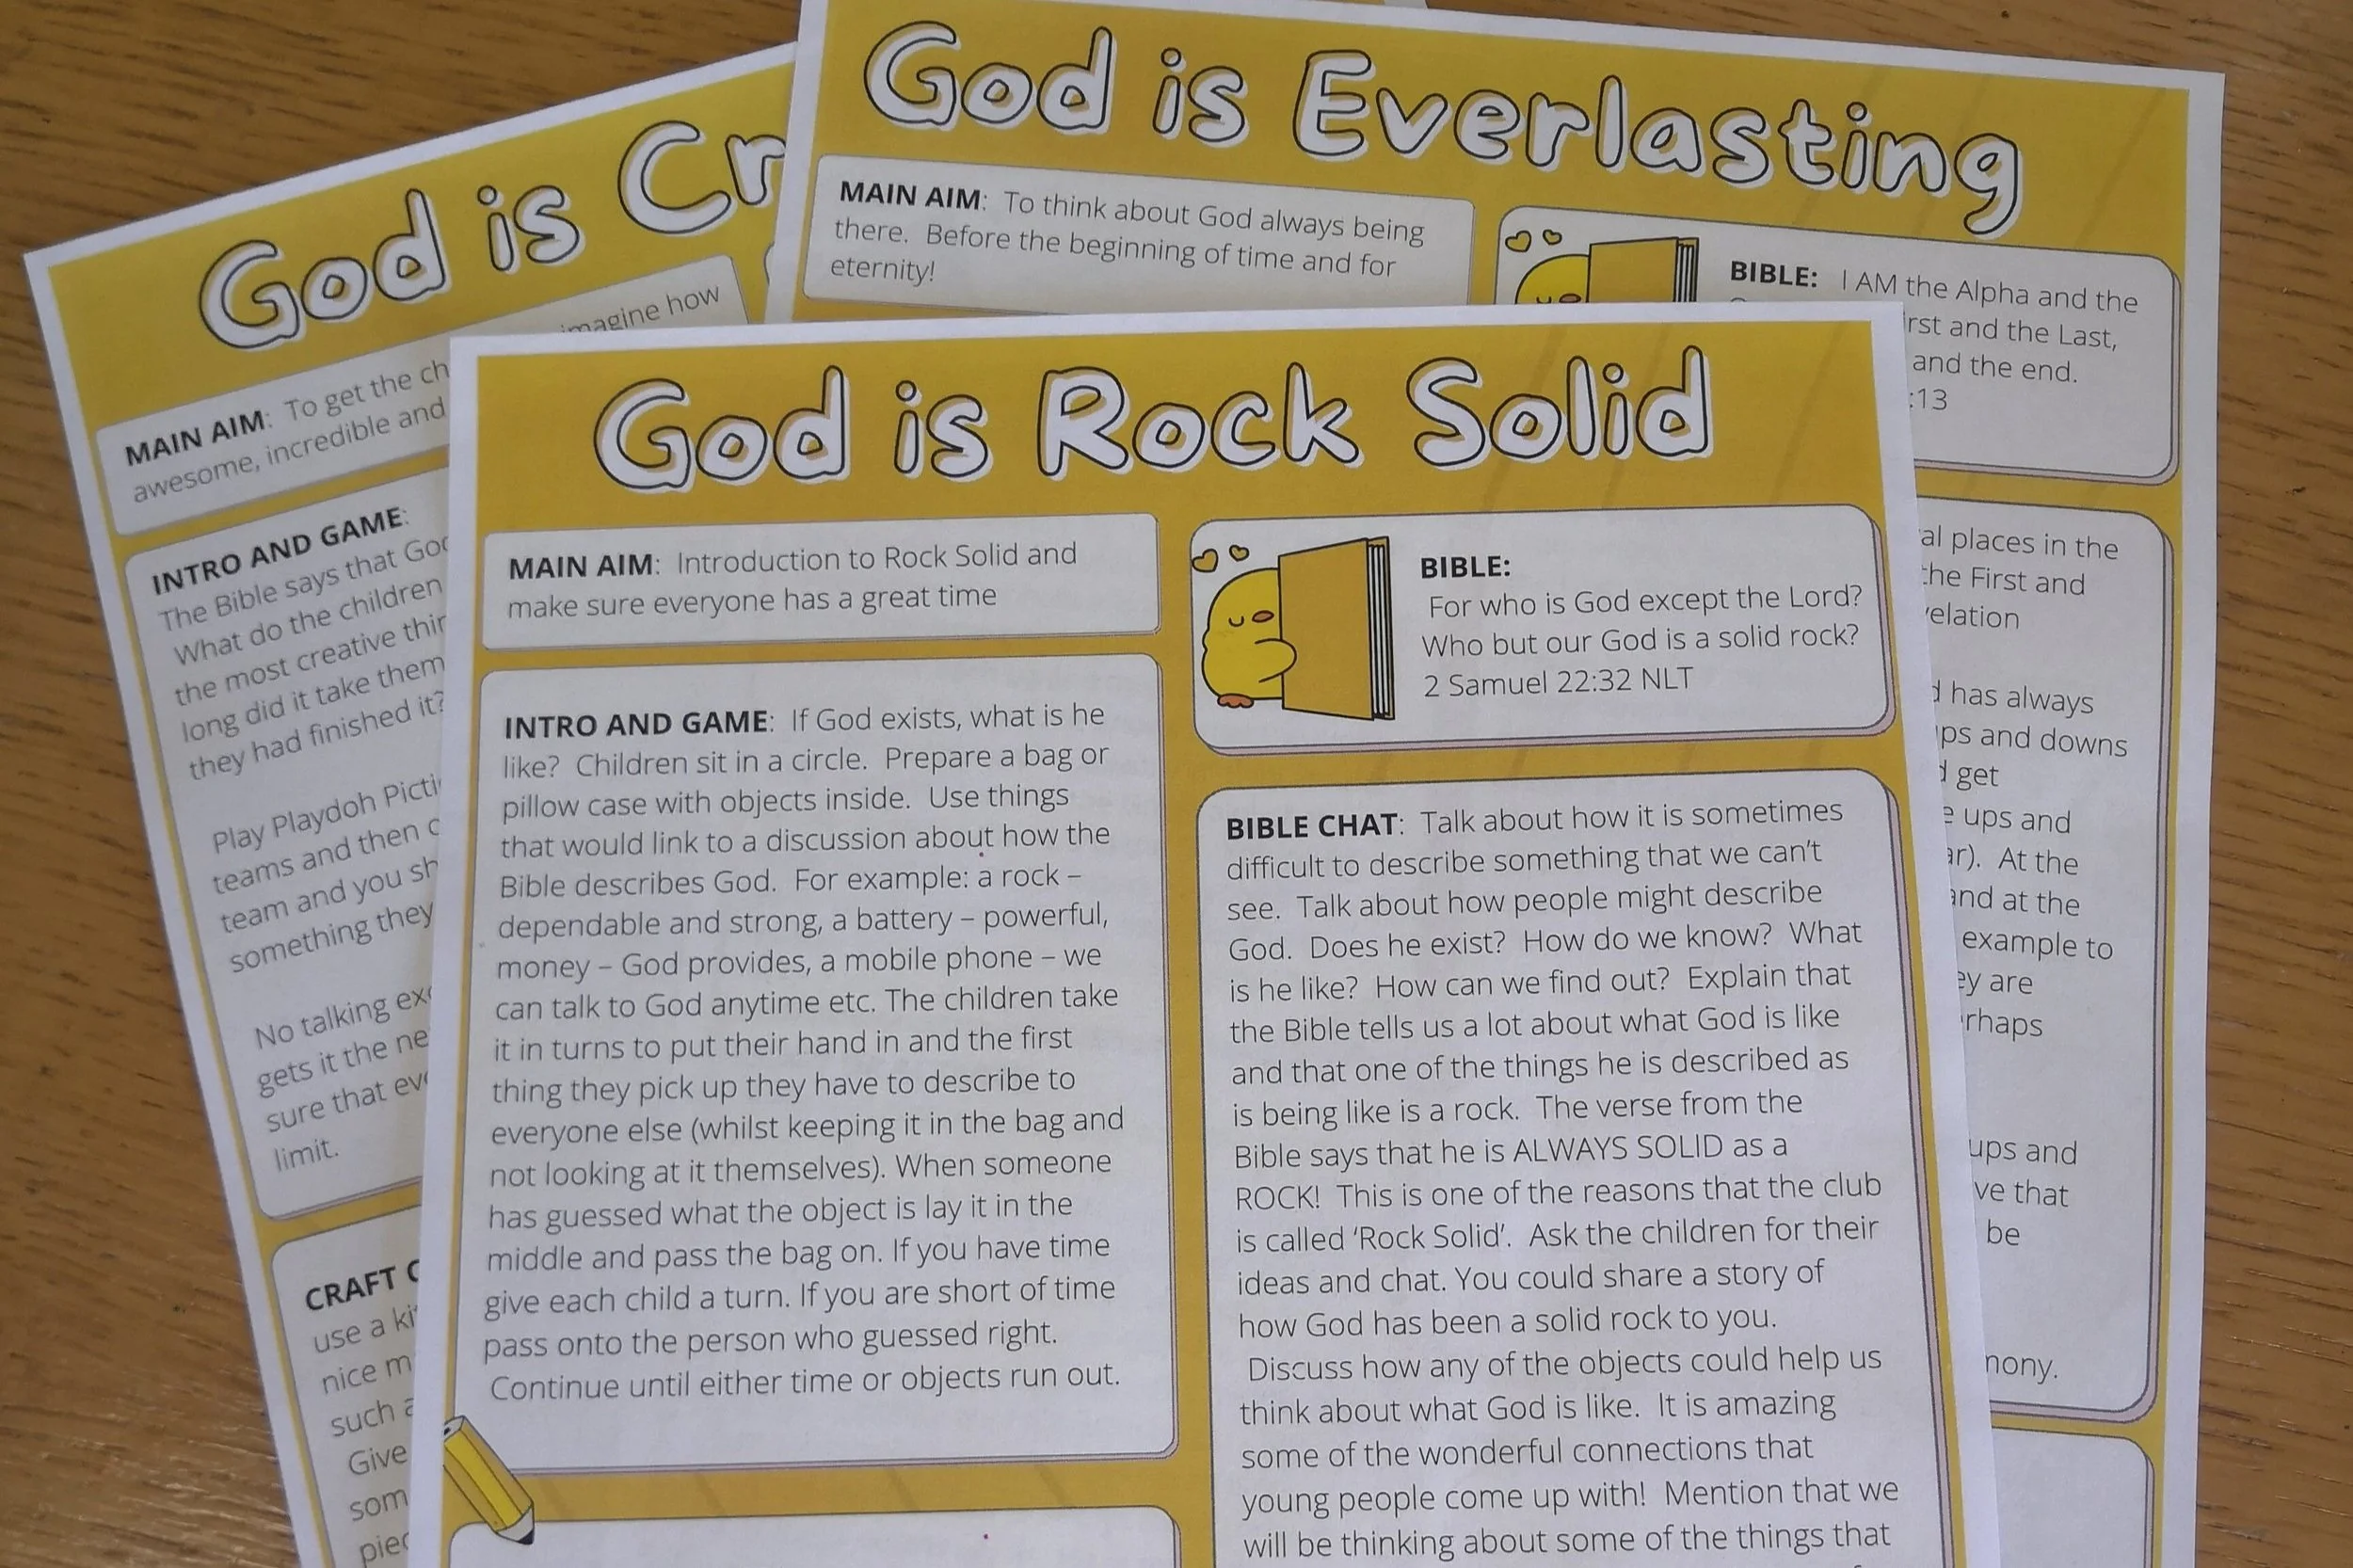 God is Everlasting
MAIN AIM: To think about God always being
there. Before the beginning of time and for
eternity!
BIBLE: I AM the Alpha and the
and the Last,
and the end.
:13
places in the
the First and
has always
and downs
get
ups and
At the
and at the
example to
are
ups and
that
be
God is
MAIN AIM: To get the
awesome, incredible and
imagine how
INTRO AND GAME:
The Bible says that
What do the children
the most creative
long did it take them
they had finished it?
Play Playdoh
teams and then
team and you
something they
No talking
gets it the
sure that
limit.
CRAFT
use a
nice
such
Give
God is Rock Solid
MAIN AIM: Introduction to Rock Solid and
make sure everyone has a great time
INTRO AND GAME: If God exists, what is he
like? Children sit in a circle. Prepare a bag or
pillow case with objects inside. Use things
that would link to a discussion about how the
Bible describes God. For example: a rock –
dependable and strong, a battery – powerful,
money – God provides, a mobile phone – we
can talk to God anytime etc. The children take
it in turns to put their hand in and the first
thing they pick up they have to describe to
everyone else (whilst keeping it in the bag and
not looking at it themselves). When someone
has guessed what the object is lay it in the
middle and pass the bag on. If you have time
give each child a turn. If you are short of time
pass onto the person who guessed right.
Continue until either time or objects run out.
BIBLE:
For who is God except the Lord?
Who but our God is a solid rock?
2 Samuel 22:32 NLT
BIBLE CHAT: Talk about how it is sometimes
difficult to describe something that we can't
see. Talk about how people might describe
God. Does he exist? How do we know? What
is he like? How can we find out? Explain that
the Bible tells us a lot about what God is like
and that one of the things he is described as
is being like is a rock. The verse from the
Bible says that he is ALWAYS SOLID as a
ROCK! This is one of the reasons that the club
is called 'Rock Solid'. Ask the children for their
ideas and chat. You could share a story of
how God has been a solid rock to you.
Discuss how any of the objects could help us
think about what God is like. It is amazing
some of the wonderful connections that
young people come up with! Mention that we
will be thinking about some of the things that